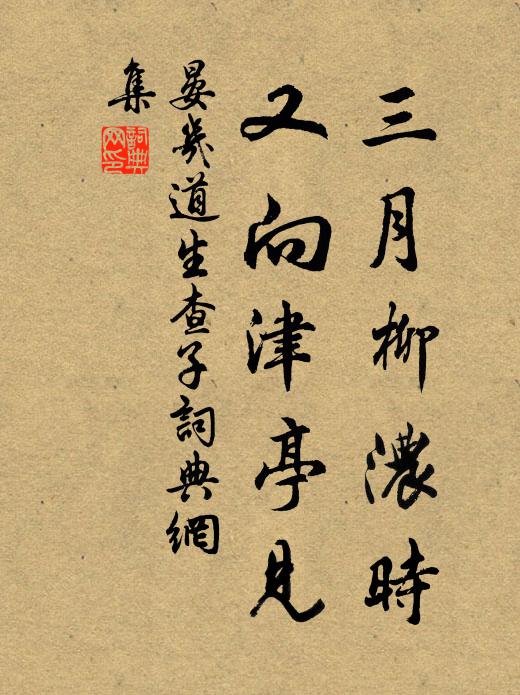 三月柳濃時
又向津亭見
晏幾道生查子詞典網
集
詞典網印